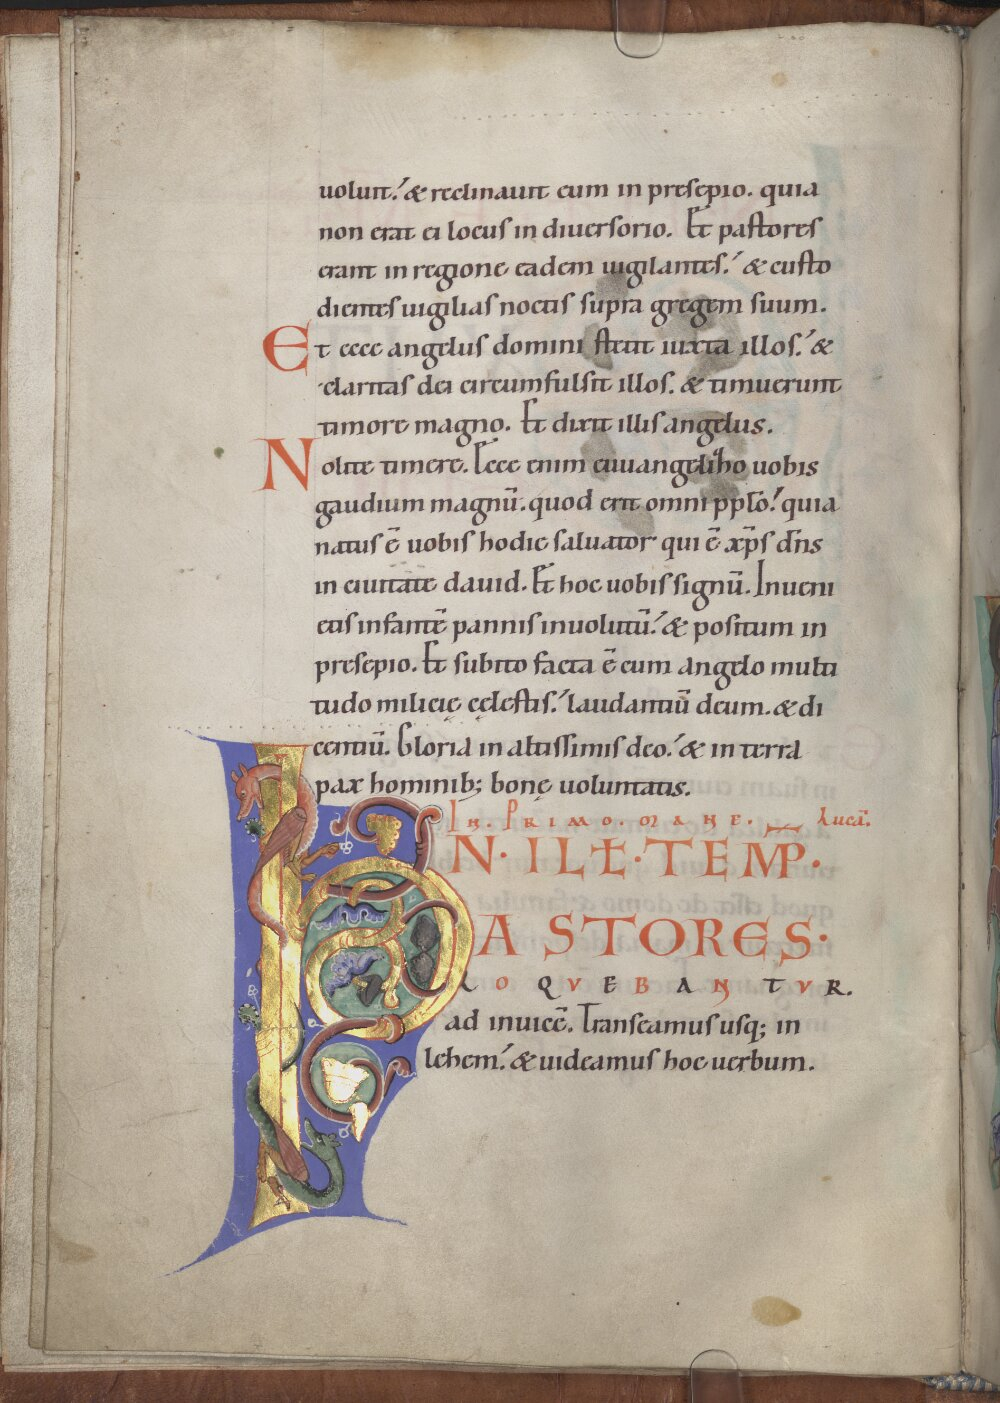 uoluit. & reclinauit eum in presepio. quia
non erat ei locus in diuersorio. Et pastores
erant in regione eadem uigilantes. & custo
dientes uigilias noctis supra gregem suum.
Et ecce angelus domini stetit iuxta illos. &
claritas dei circumfulsit illos. & timuerunt
timore magno. Et dixit illis angelus.
Nolite timere. Ecce enim euuangelizo uobis
gaudium magnū. quod erit omni pplo. quia
natus ē uobis hodie saluator qui ē xp̄s dn̄s
in ciuitate dauid. Et hoc uobis signū. Inueni
etis infantē pannis inuolutū. & positum in
presepio. Et subito facta ē cum angelo multi
tudo milicię cęlestis. laudantiū deum. & di
centiū. Gloria in altissimis deo. & in terra
pax hominib; bonę uoluntatis.
IN. PRIMO. MANE. Lucā.
IN. ILL. TEMP̄.
PASTORES.
LOQVEBANTVR.
ad inuicē. Transeamus usq; in
lehem. & uideamus hoc uerbum.